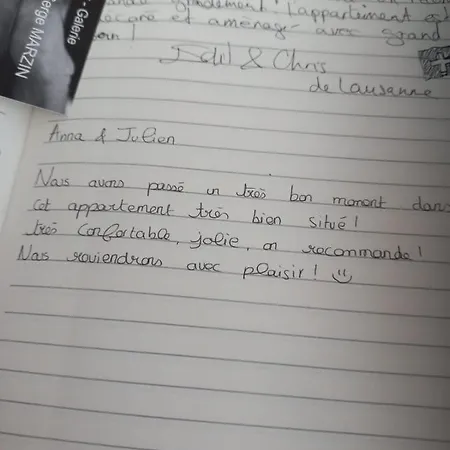 l'appartement est
et aménagé avec grand
& Chris
de Lausanne
- Galerie
erge MARZIN
Anna & Julien
Nous avons passé un très bon moment dans
cet appartement très bien situé !
très confortable, jolie, on recommande !
Nous reviendrons avec plaisir ! :)